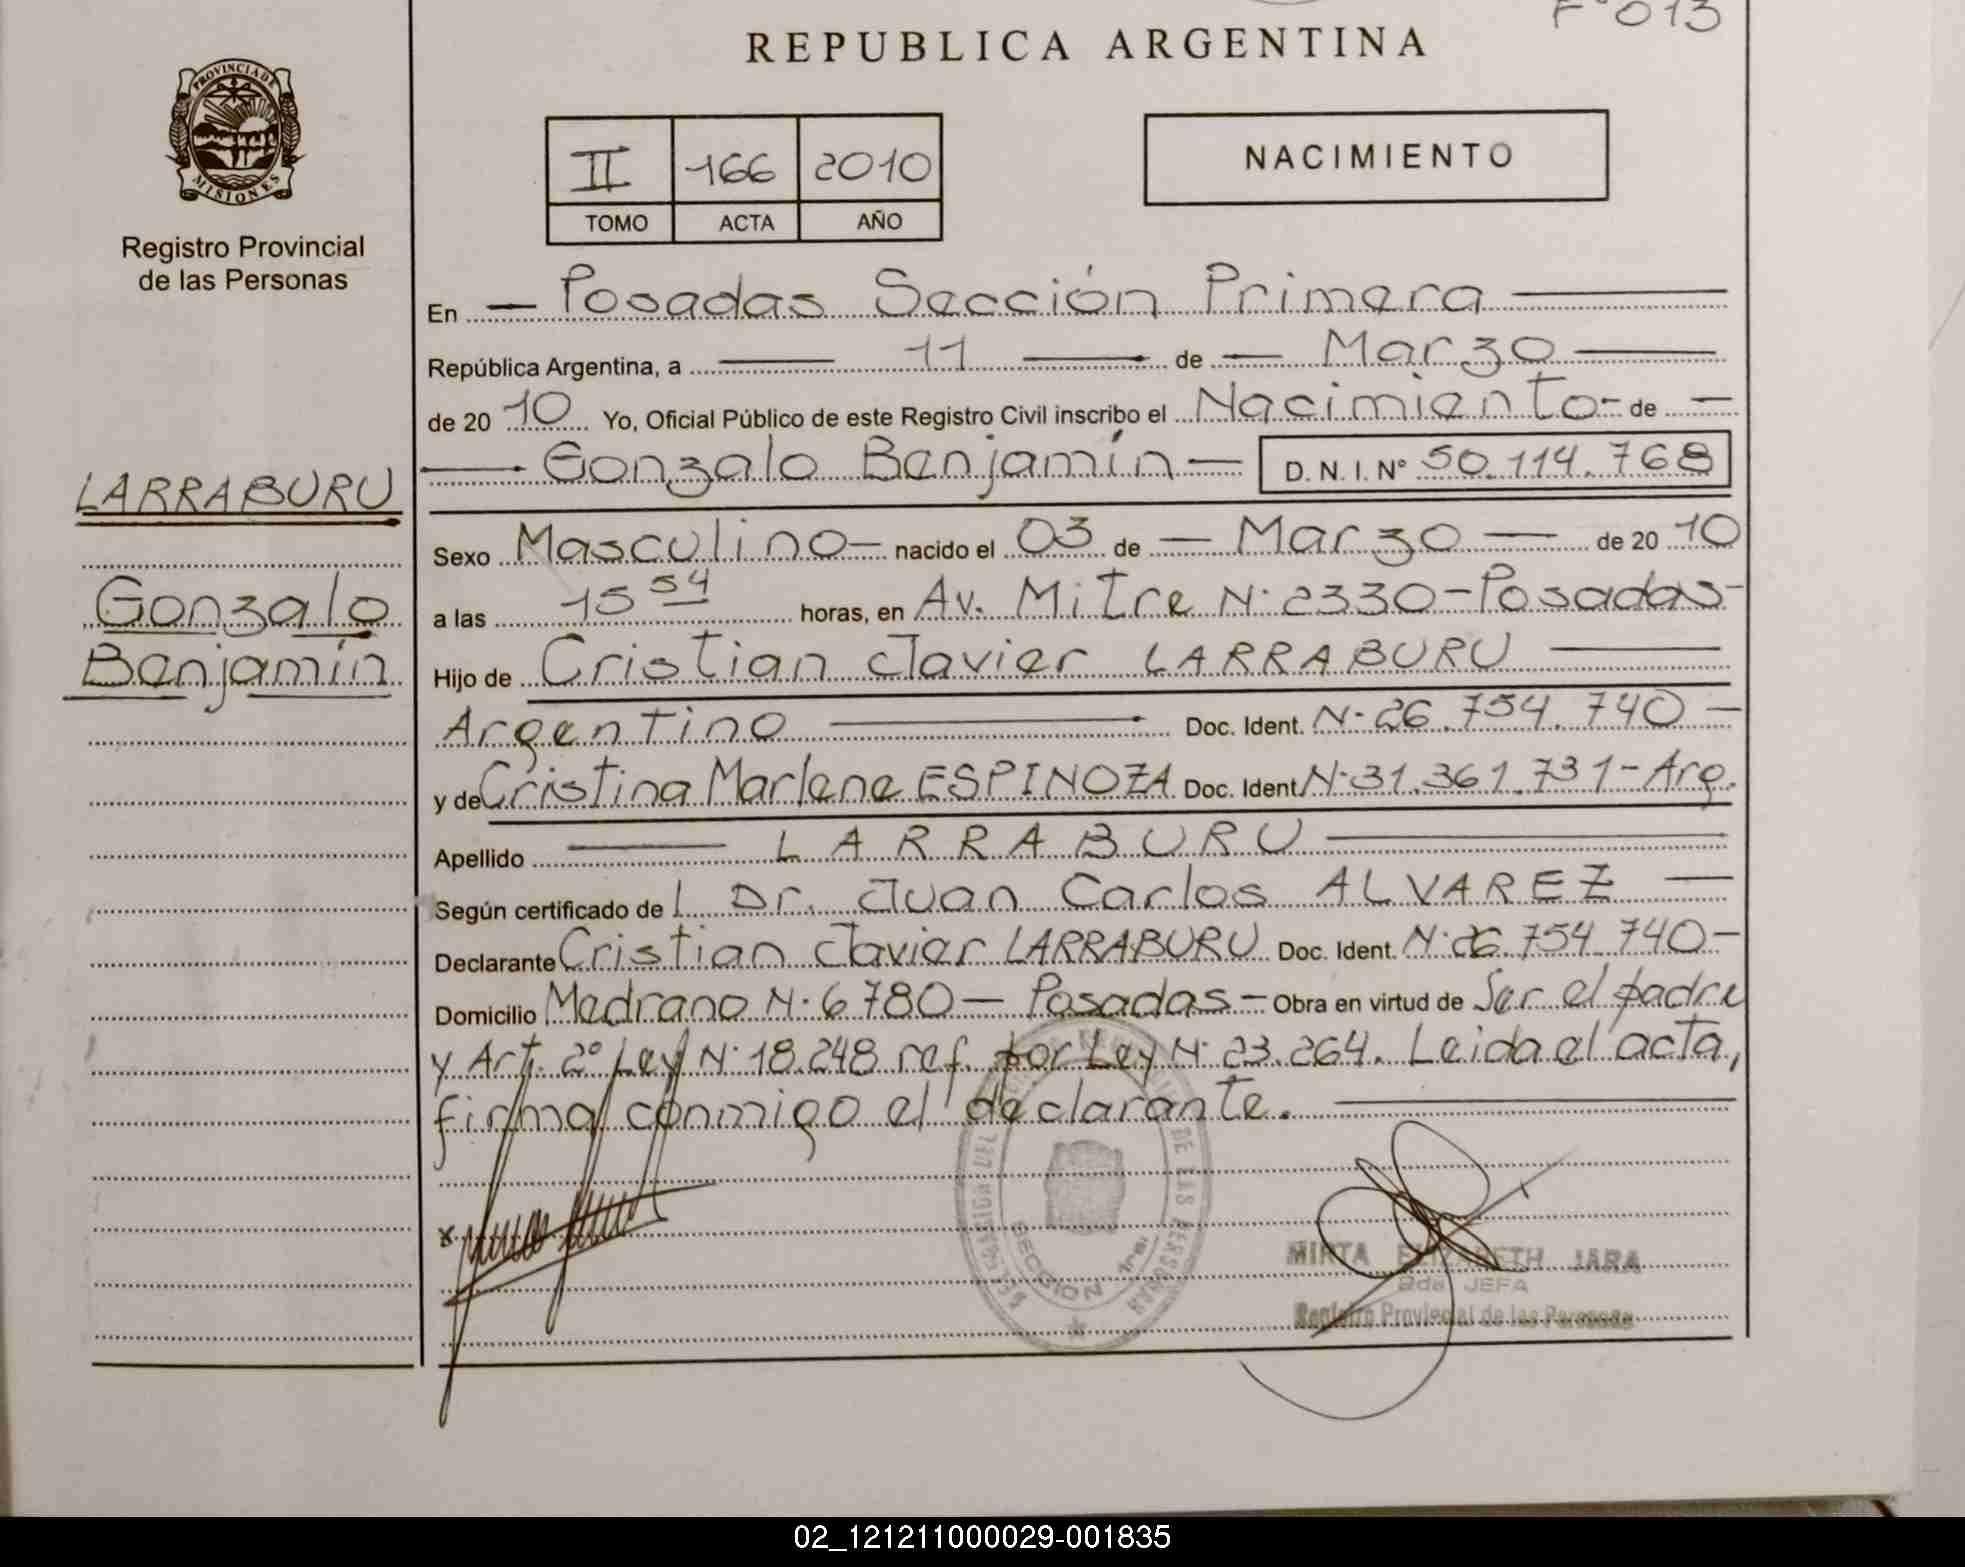 F° 013
REPUBLICA ARGENTINA
PROVINCIA DE
MISIONES
Registro Provincial
de las Personas
II 166 2010
TOMO ACTA AÑO
NACIMIENTO
En Posadas Sección Primera
República Argentina, a 11 de Marzo
de 20 10 Yo, Oficial Público de este Registro Civil inscribo el Nacimiento - de
Gonzalo Benjamín D. N. I. N° 50.114.768
LARRABURU
Gonzalo
Benjamín
Sexo Masculino nacido el 03 de Marzo de 20 10
a las 15 54 horas, en Av. Mitre N° 2330 - Posadas -
Hijo de Cristian Javier LARRABURU
Argentino Doc. Ident. N° 26.754.740 -
y de Cristina Marlene ESPINOZA Doc. Ident. N° 31.361.731 - Arg.
Apellido LARRABURU
Según certificado de l Dr. Juan Carlos ALVAREZ
Declarante Cristian Javier LARRABURU Doc. Ident. N° 26.754.740 -
Domicilio Medrano N° 6780 - Posadas - Obra en virtud de Ser el padre
y Art. 2° Ley N° 18.248 ref. por Ley N° 23.264. Leida el acta,
firma conmigo el declarante.
DE LAS PERSONAS
SECCION 1ra.
MIRTA ELIZABETH JARA
2da JEFA
Registro Provincial de las Personas
02_121211000029-001835